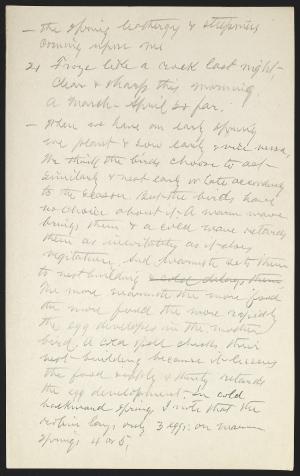 — the spring leathergy & stepsives
coming upon me
21 Froze like a rock last night,
clear & sharp this morning.
A March-April so far.
— When we have an early spring
we plant & sow early & vice versa,
We think the birds choose to act
similarly & nest early or late according
to the season. But the birds have
no choice about it. A warm wave
brings them & a cold wave retards
them as inevitably as it does
vegetation. And warmth sets them
to nest building & cold delays them
The more warmth the more food
the more food the more rapidly
the egg developes in the mother
bird. A cold spell checks their
nest-building because it lessens
the food supply & thus retards
the egg development. In cold
backward springs I note that the
robin lays only 3 eggs: on warm
springs 4 or 5.